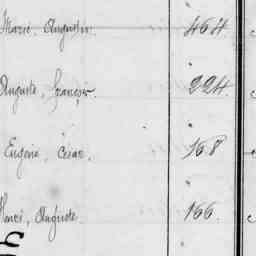 Marie, Augustin. 464.
Auguste, françois. 224.
Eugène, César. 168
Henri, Auguste. 166.